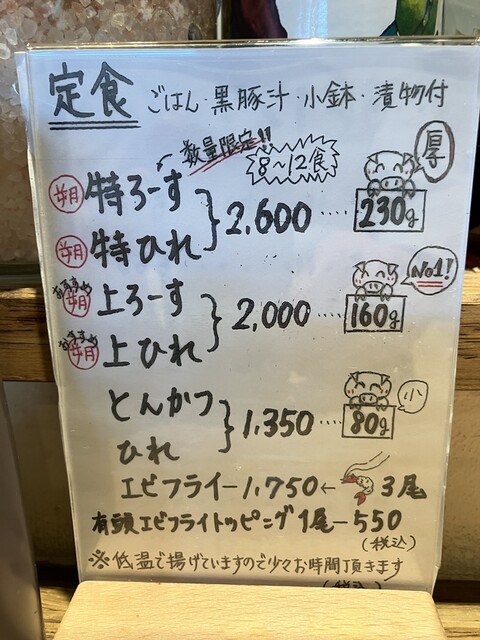 定食 ごはん・黒豚汁・小鉢・漬物付
数量限定!!
8~12食
特ろーす
特ひれ
2,600 ‥‥ 230g
厚
おすすめ
上ろーす
おすすめ
上ひれ
2,000 ‥‥ 160g
No1!
とんかつ
ひれ
1,350 ‥‥ 80g
小
エビフライー1,750← 3尾
有頭エビフライトッピング1尾ー550
(税込)
※低温で揚げていますので少々お時間頂きます
(税込)